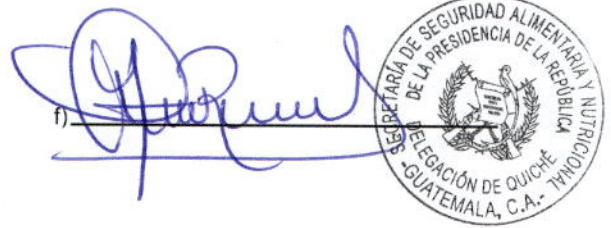 f)
SECRETARIA DE SEGURIDAD ALIMENTARIA Y NUTRICIONAL
DE LA PRESIDENCIA DE LA REPÚBLICA
DELEGACIÓN DE QUICHÉ
-GUATEMALA, C.A.-